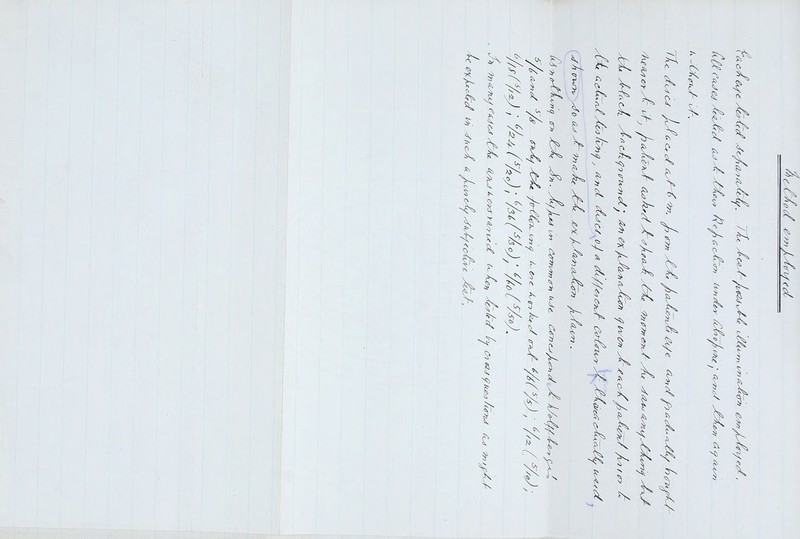 Method employed
Each eye tested separately. The best possible illumination employed.
All cases tested as to their Refraction under atropine; and then again
without it.
The discs placed at 6 m. from the patient's eye and gradually brought
nearer to it, patient asked to speak the moment he saw anything but
the black background; an explanation given to each patient prior to
the actual testing, and discs of a different colour to those actually used,
(shown so as to make the explanation plain.
As nothing on the Sn. types in common use corresponds to Wolffberg's
5/6 and 5/8 only the following were worked out 6/6 (5/5); 6/12 (5/10);
6/18 (5/12); 6/24 (5/20); 6/36 (5/30); 6/60 (5/50).
In many cases the answers varied when tested by cross questions as might
be expected in such a purely subjective test.